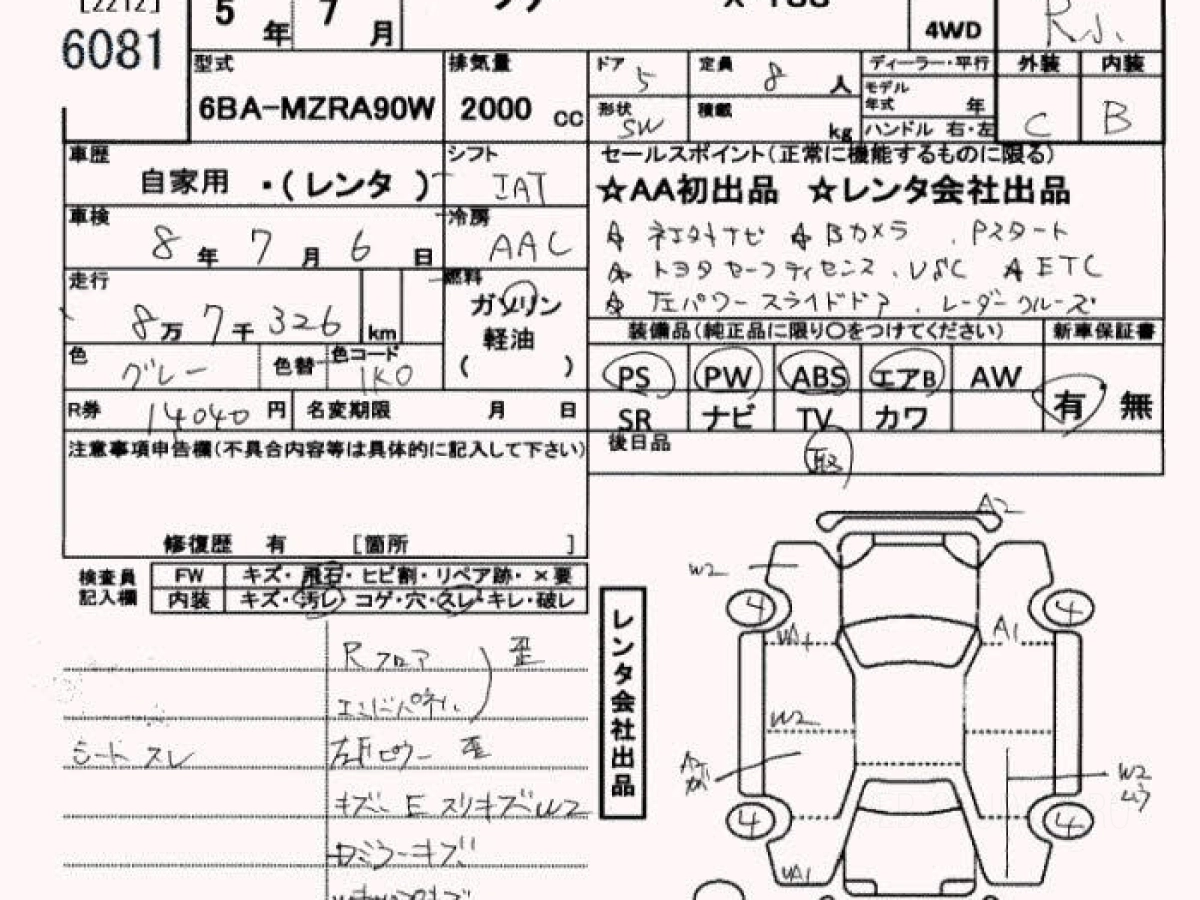 [2212]
6081
5 年 7 月
4WD
型式
6BA-MZRA90W
排気量
2000 cc
ドア 5
定員 8 人
形状 SW
積載 kg
ディーラー・平行
モデル年式 年
ハンドル 右・左
外装 内装
C B
車歴
自家用 ・(レンタ)
シフト
IAT
車検
8 年 7 月 6 日
冷房
AAC
走行
8万 7千 326 km
燃料
ガソリン
軽油
( )
色
グレー
色替
色コード
1K0
R券 14040 円
名変期限 月 日
セールスポイント(正常に機能するものに限る)
☆AA初出品 ☆レンタ会社出品
ナビ ☆ Bカメラ . Pスタート
☆ トヨタ セーフティセンス . VSC ☆ ETC
☆ 左パワースライドドア . レーダークルーズ
装備品(純正品に限り○をつけてください)
新車保証書
PS PW ABS エアB AW
SR ナビ TV カワ
有 無
後日品
取
注意事項申告欄(不具合内容等は具体的に記入して下さい)
修復歴 有 [箇所 ]
検査員記入欄
FW キズ・飛石・ヒビ割・リペア跡・×要
内装 キズ・汚レ・コゲ・穴・スレ・キレ・破レ
Rフロア
エンドパネル
歪
シート スレ
左Rピラー 歪
キズ E スリキズW2
ミラーキズ
レンタ会社出品
A2
W2
4 4
A1
W2
W2
4 4